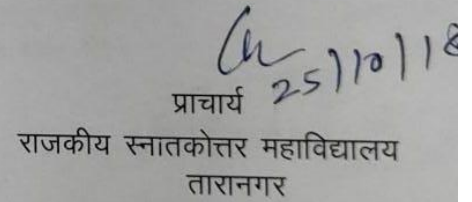 25/10/18
प्राचार्य
राजकीय स्नातकोत्तर महाविद्यालय
तारानगर